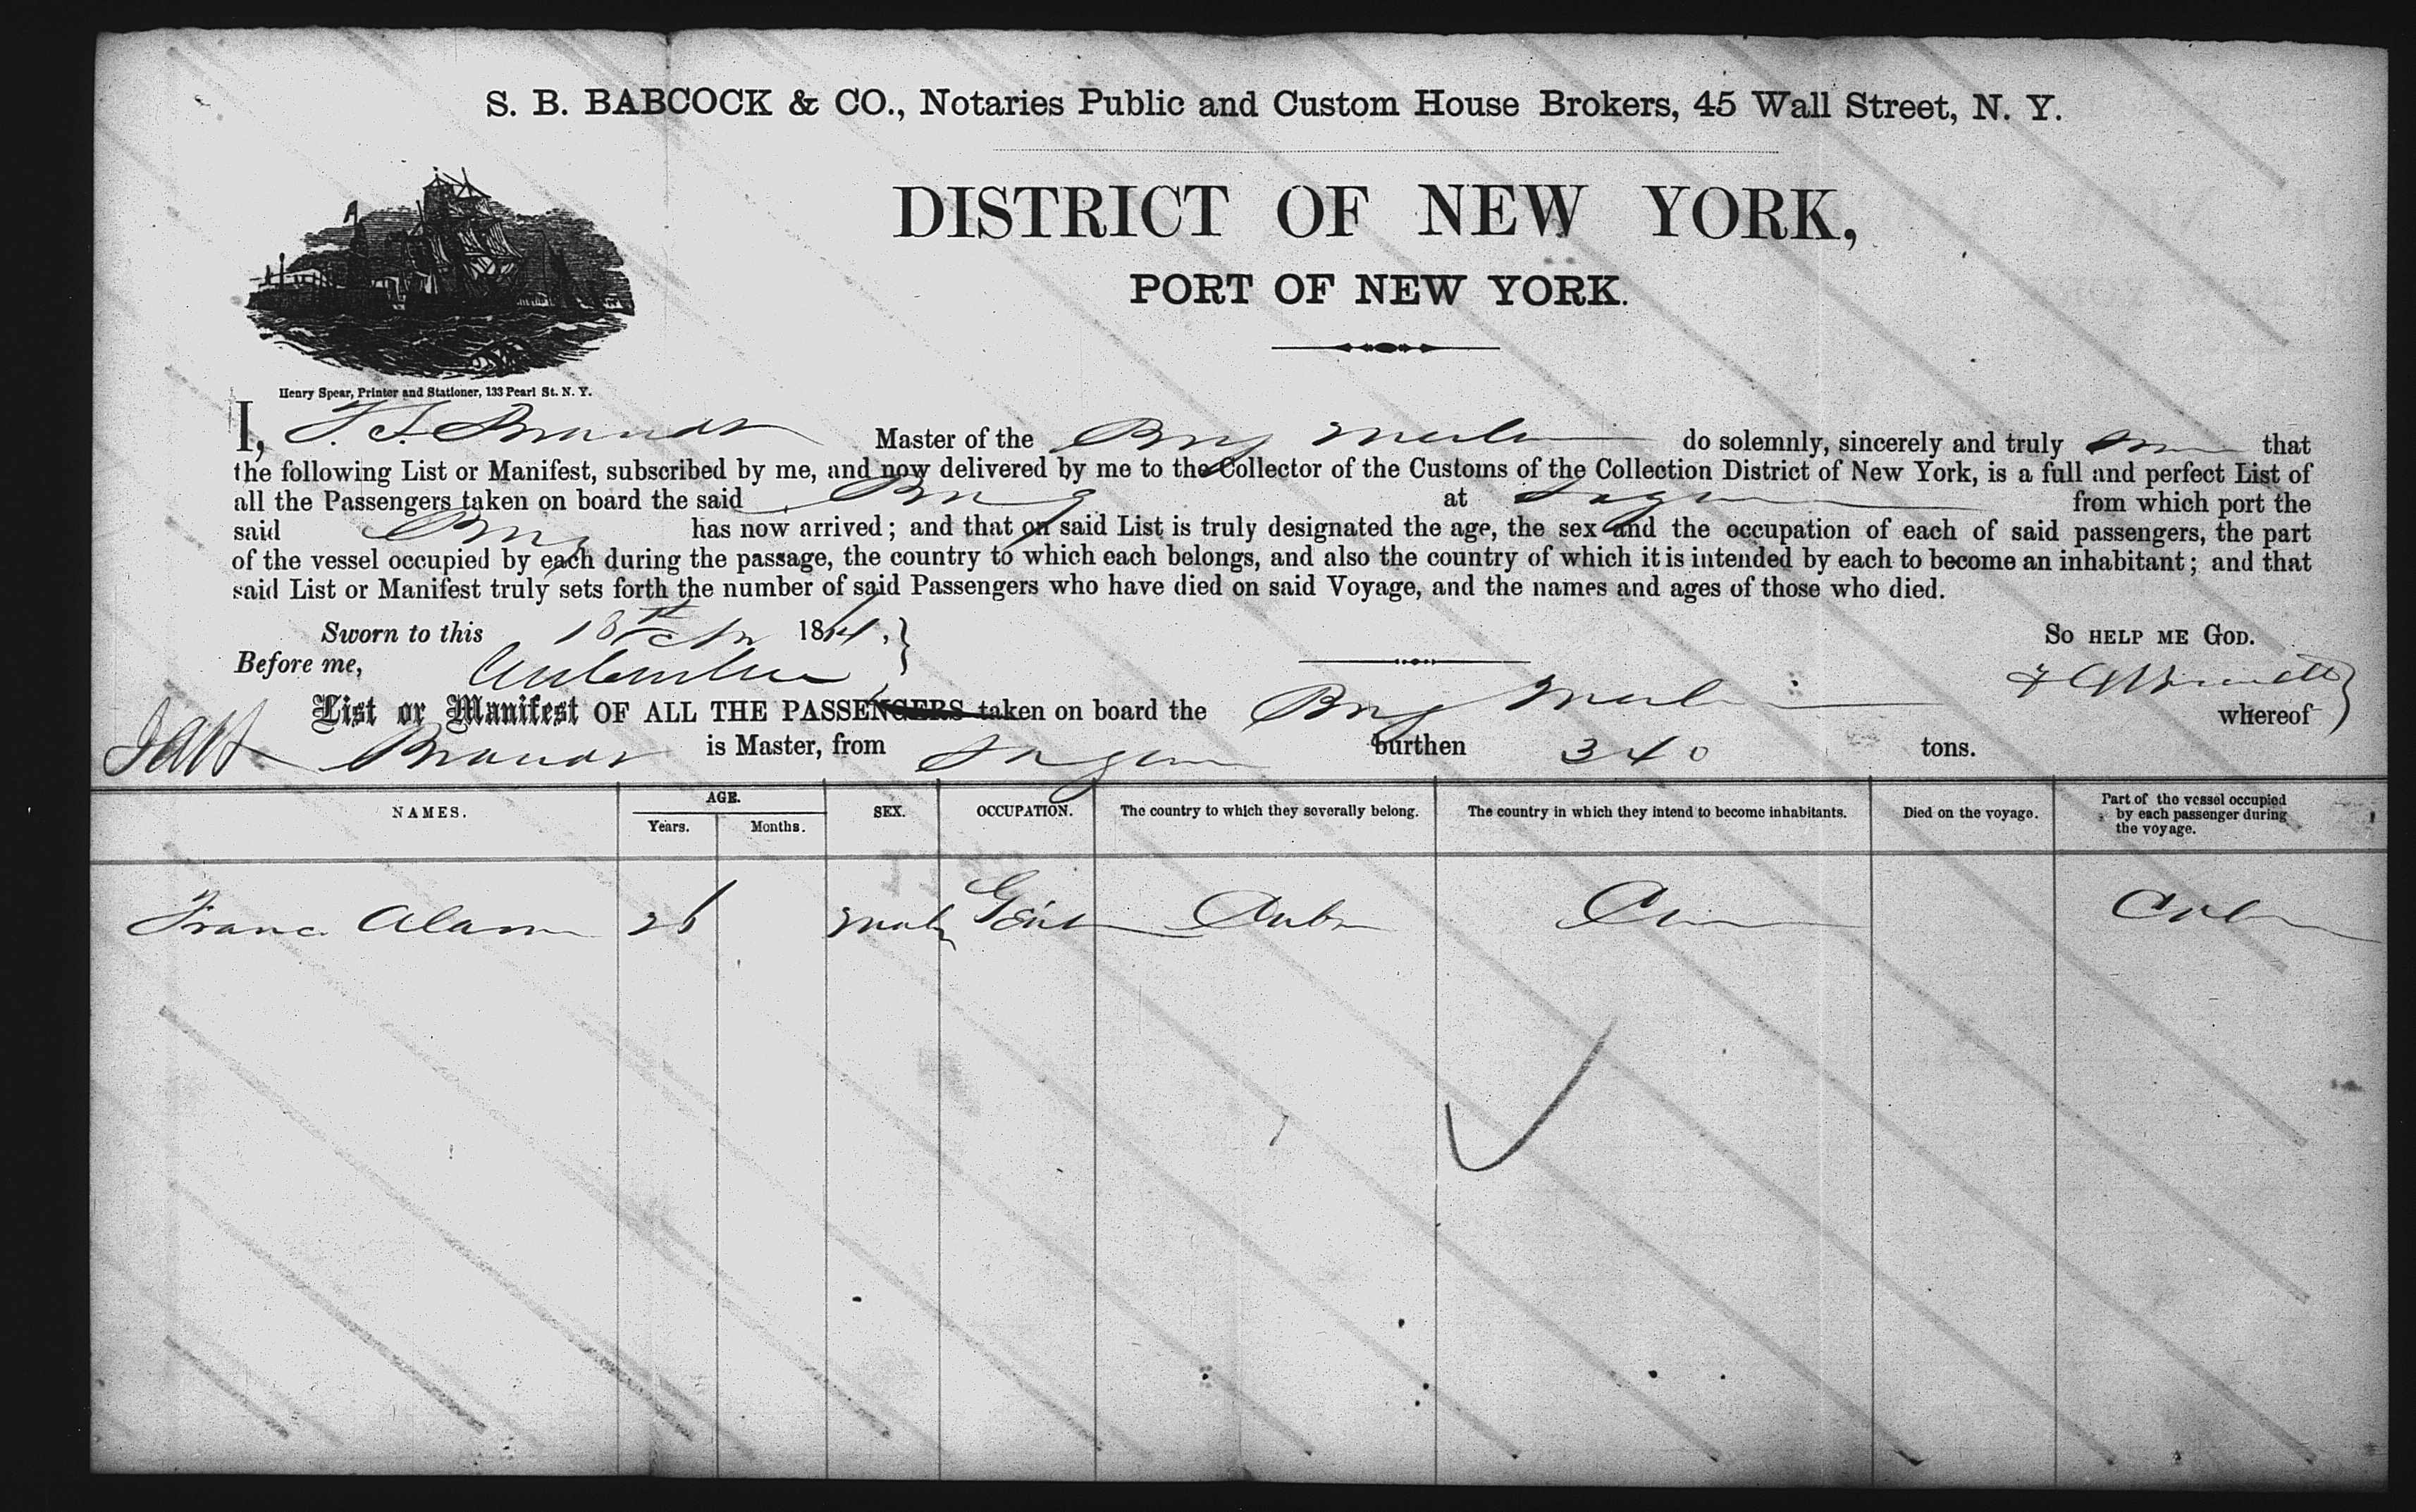 S. B. BABCOCK & CO., Notaries Public and Custom House Brokers, 45 Wall Street, N. Y.
DISTRICT OF NEW YORK,
PORT OF NEW YORK.
Henry Spear, Printer and Stationer, 133 Pearl St. N. Y.
I, Master of the Brig do solemnly, sincerely and truly that
the following List or Manifest, subscribed by me, and now delivered by me to the Collector of the Customs of the Collection District of New York, is a full and perfect List of
all the Passengers taken on board the said Brig at from which port the
said Brig has now arrived; and that on said List is truly designated the age, the sex and the occupation of each of said passengers, the part
of the vessel occupied by each during the passage, the country to which each belongs, and also the country of which it is intended by each to become an inhabitant; and that
said List or Manifest truly sets forth the number of said Passengers who have died on said Voyage, and the names and ages of those who died.
Sworn to this 18th 18 SO HELP ME GOD.
Before me,
List or Manifest OF ALL THE PASSENGERS taken on board the Brig whereof
is Master, from burthen 340 tons.
NAMES. AGE. Years. Months. SEX. OCCUPATION. The country to which they severally belong. The country in which they intend to become inhabitants. Died on the voyage. Part of the vessel occupied by each passenger during the voyage.
Male Cuba